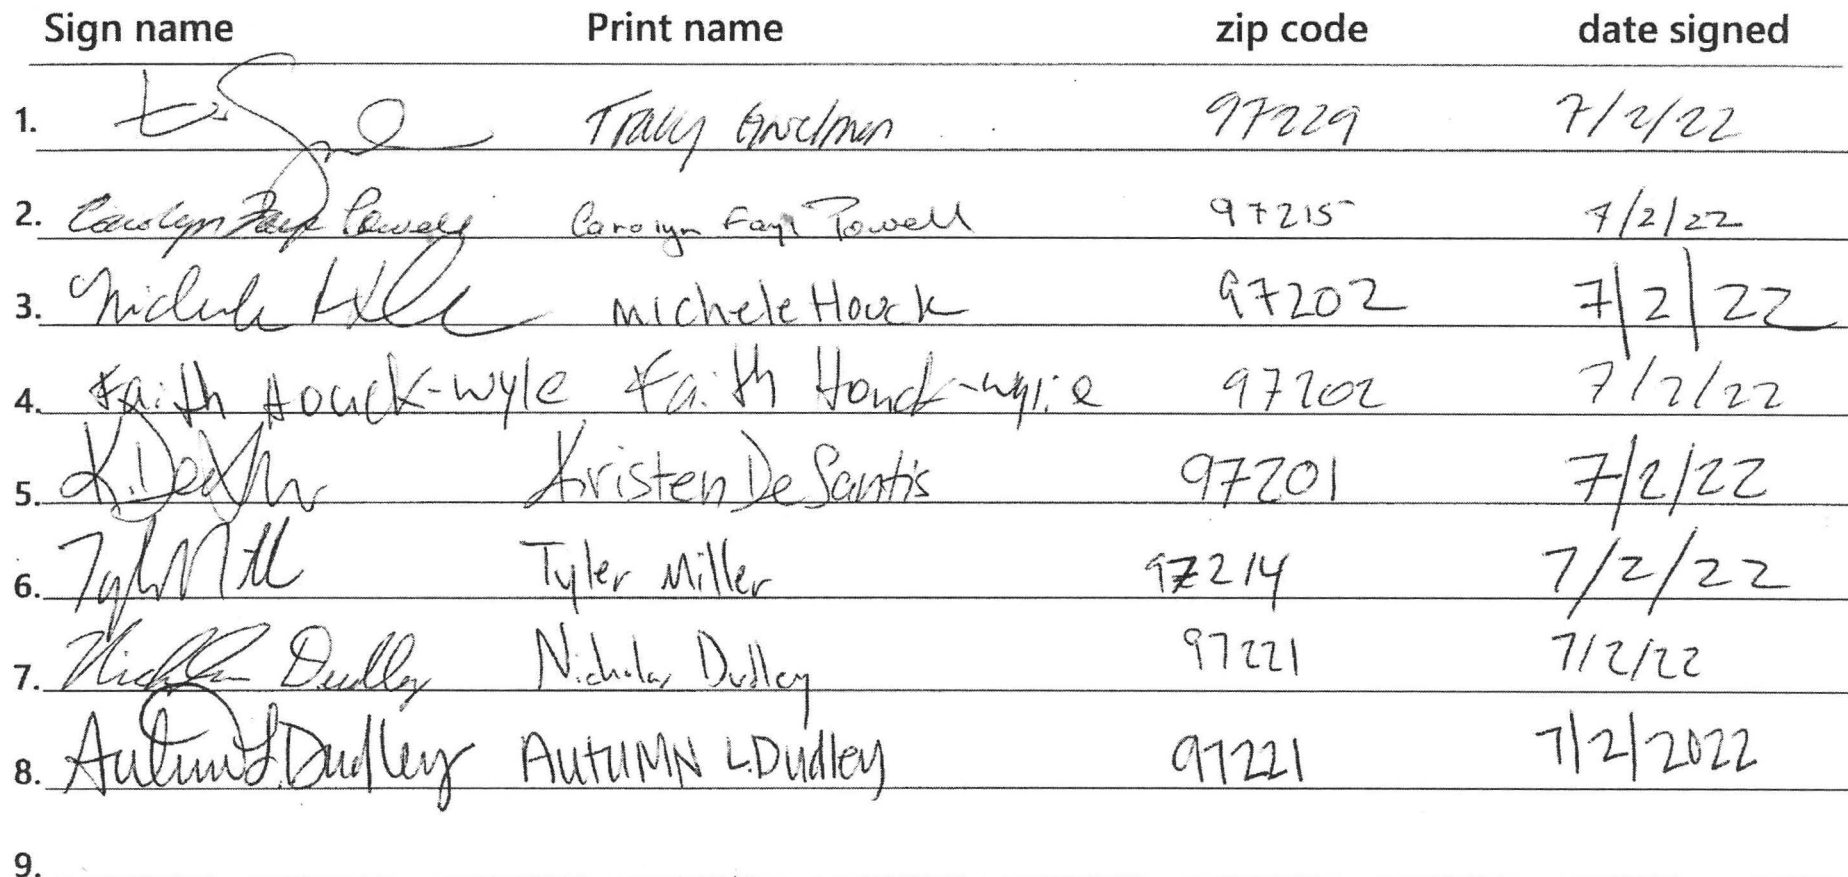 Sign name Print name zip code date signed
1. Tracy 97229 7/2/22
2. Carolyn Faye Powell Carolyn Faye Powell 97215 7/2/22
3. Michele Michele Houck 97202 7/2/22
4. Faith Houck-wyle Faith Houck-wylie 97202 7/2/22
5. Kristen DeSantis 97201 7/2/22
6. Tyler Miller 97214 7/2/22
7. Nicholas Dudley Nicholas Dudley 97221 7/2/22
8. Autumn L. Dudley AUTUMN L. Dudley 97221 7/2/2022
9.